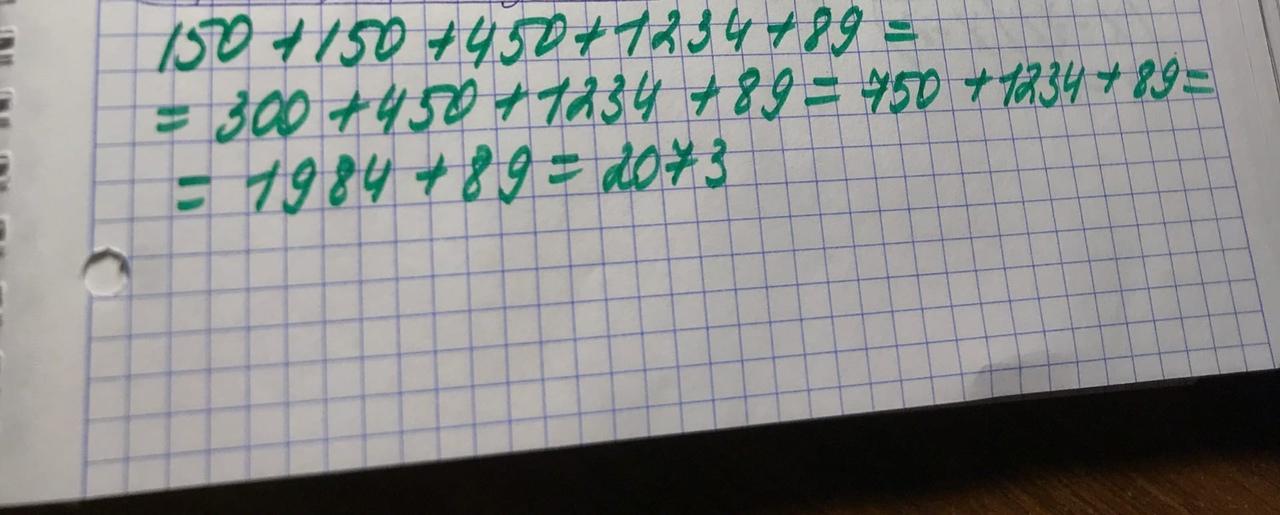 150 + 150 + 450 + 1234 + 89 =
= 300 + 450 + 1234 + 89 = 750 + 1234 + 89 =
= 1984 + 89 = 2073